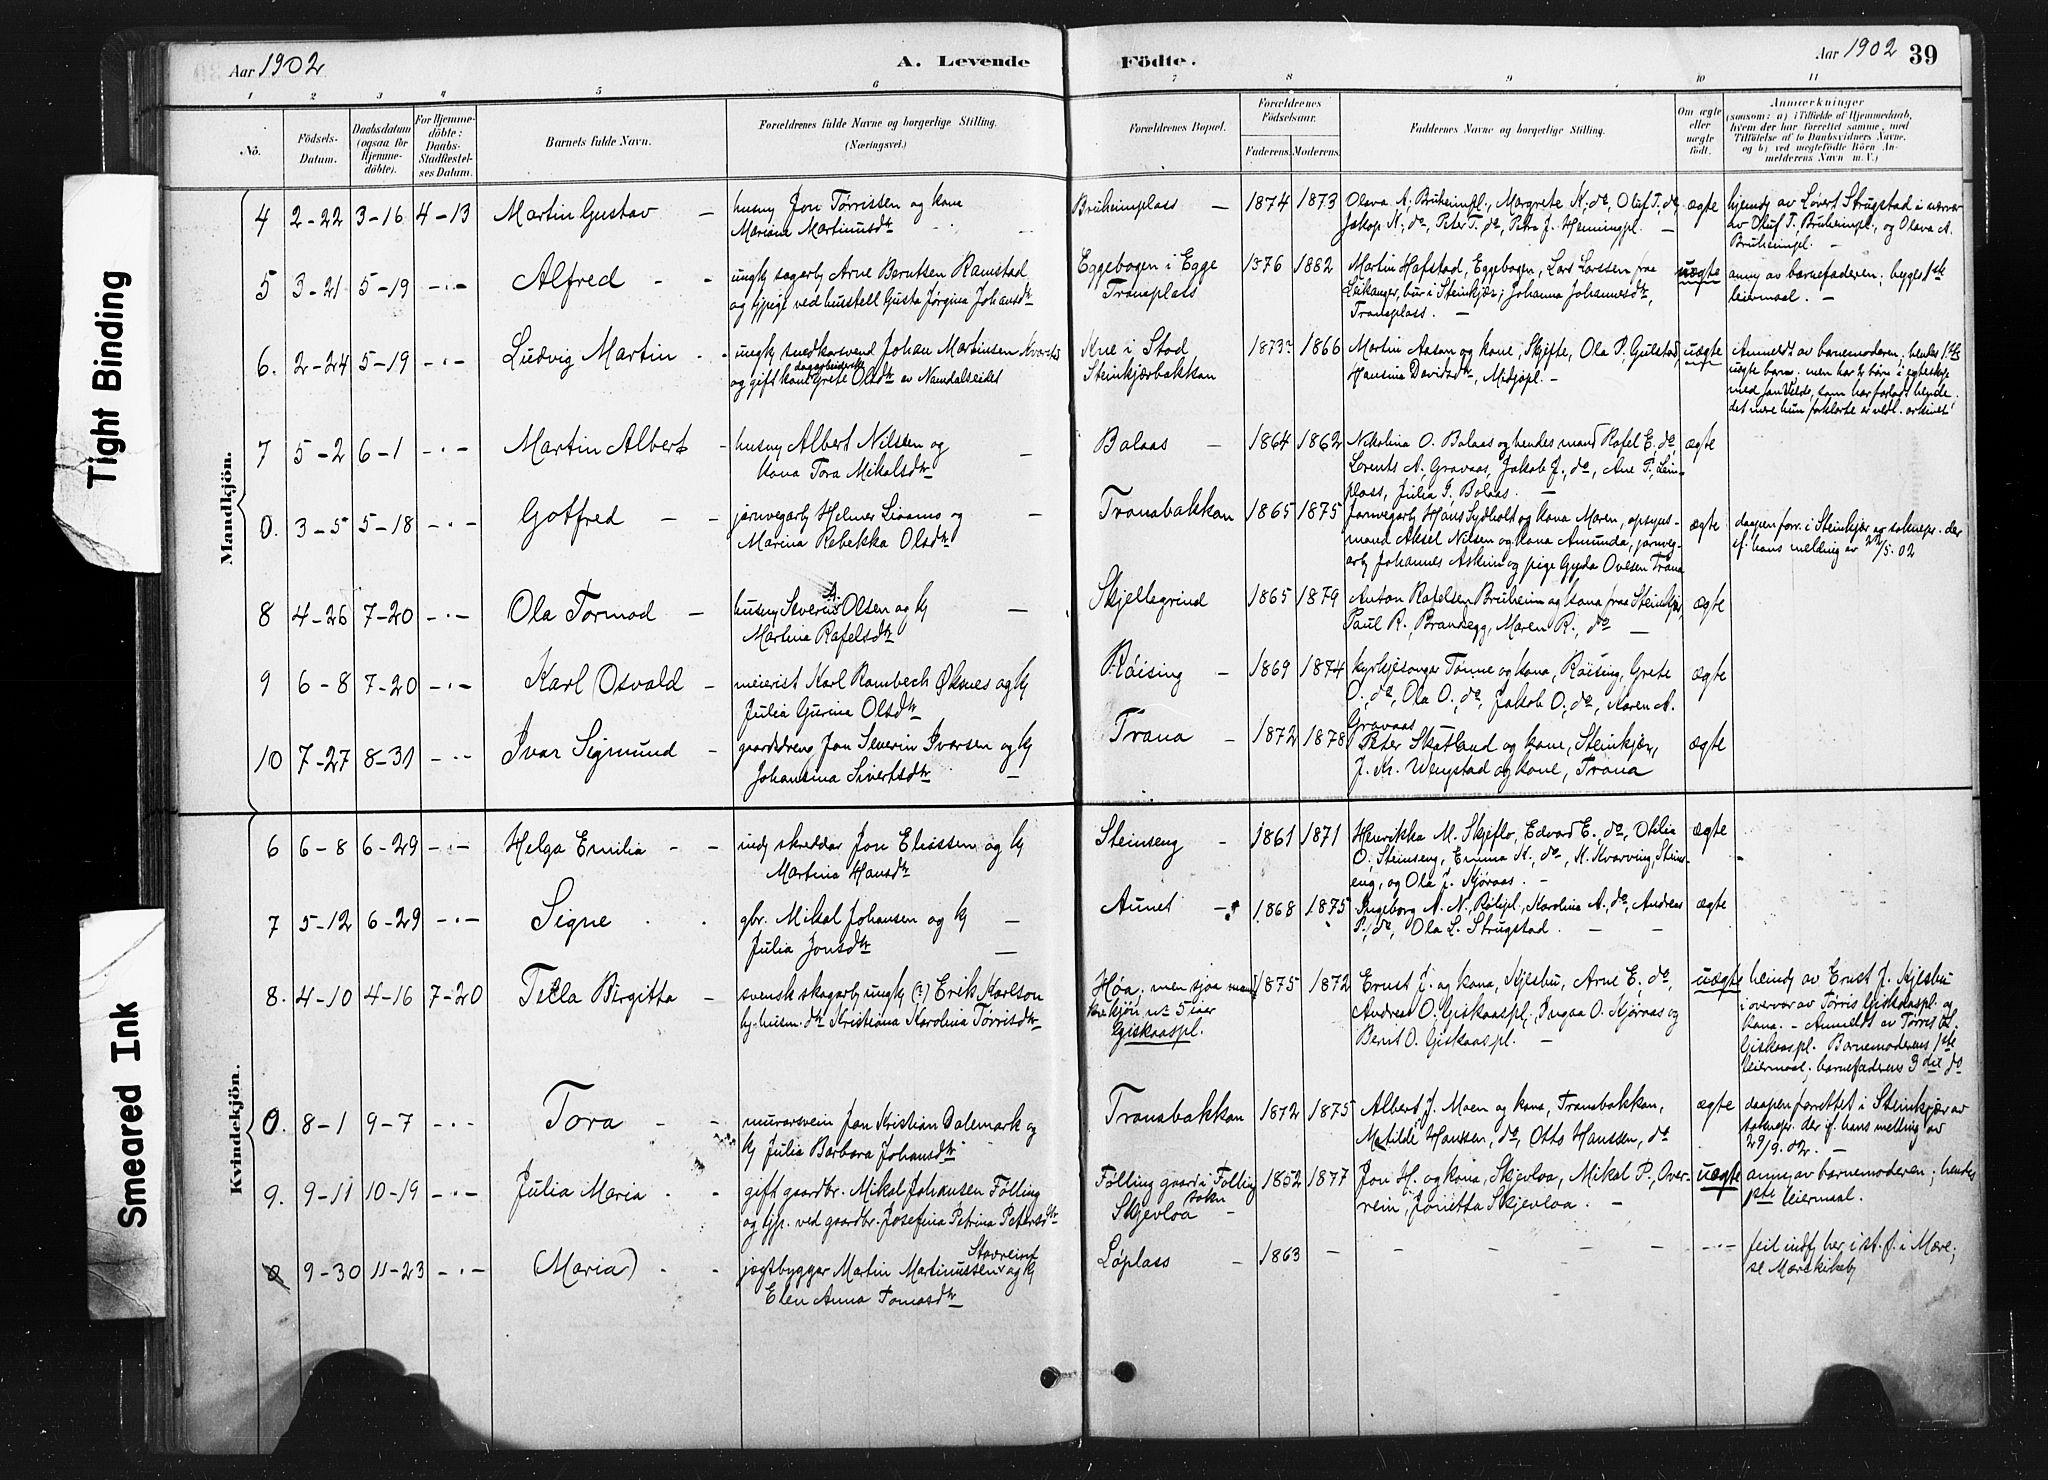 Aar 1902
A. Levende
Födte.
Aar 1902
39
1 2 3 4 5 6 7 8 9 10 11
No.
Födsels-
Datum.
Daabsdatum
(ogsaa for
Hjemme-
döbte).
For Hjemme-
döbte:
Daabs-
Stadfæstel-
ses Datum.
Barnets fulde Navn.
Forældrenes fulde Navne og borgerlige Stilling.
(Næringsvei.)
Forældrenes Bopæl.
Forældrenes
Födselsaar.
Faderens. Moderens.
Faddernes Navne og borgerlige Stilling.
Om ægte
eller
uægte
födt.
Anmærkninger
(saasom: a) i Tilfælde af Hjemmedaab,
hvem der har forrettet samme, med
Tilföielse af to Daabsvidners Navne,
og b) ved uægtefödte Börn An-
melderens Navn m. V.)
Mandkjön.
4 2-22 3-16 4-13 Martin Gustav –
husmy Jon Tørrissen og kone
Mariane Martinusdtr
Bruheimplass – 1874 1873
Olava A. Bruheimpl., Margrete K., do, Oluf T., do,
Jakop N., do, Peter T., do, Petra J. Henningpl. –
ægte
hjemdy av Løvert Strugstad i nærver
av Oluf T. Bruheimpl., og Olava A.
Bruheimpl. –
5 3-21 5-19 -·- Alfred - -
ungk sagarb Arne Berntsen Ramstad
og tjpige ved husstell Gusta Jørgina Johansdtr
Eggebogen i Egge
Tranaplass
1876 1882
Martin Hafstad, Eggebogen, Lars Larssen fraa
Leikanger, bur i Steinkjær; Johanna Johannesdtr,
Tranaplass. –
uægte
anmy av barnefaderen; begges 1ste
leiermaal. –
6. 2-24 5-19 -·- Ludvig Martin - -
ungk snedkarsvend Johan Martinsen
dagarbeiderske
og gift kone Grete Olsdtr av Namdalseidet
i Stod
Steinkjærbakkan
1873 1866
Martin Aasan og kone, Skjefte, Ola P. Gulstad,
Hansina Davidsdtr, Medjøpl. –
uægte
Anmeldt av barnemoderen; hendes
uægte barn. men har 2 børn i egteskap
med Jan Velde, som har forladt hende.
det mere hun forklarte er vedl. arkivet!
7 5-2 6-1 -·- Martin Albert -
husmy Albert Nilssen og
kona Tora Mikalsdtr
–
Bolaas – 1864 1862
Nikolina O. Bolaas og hendes mand Rafel E., do,
Lorents A. Gravaas, Jakob J., do, Ane P. Lein-
plass, Julia J. Bolaas. –
ægte
0. 3-5 5-18 -·- Gotfred – –
jarnvegarb Helmer Livamo og
Marina Rebekka Olsdtr
–
Tranabakkan 1865 1875
Jarnvegarb Hans Sydholt og kona Maren, opsyns-
mand Aksel Nilsen og kona Amunda, jarnveg-
arb Johannes Askim og pige Gyda Ovesen Trana
ægte
daapen forr. i Steinkjær av soknepr. der
if. hans melding av 22/5. 02
8 4-26 7-20 -·- Ola Tormod –
husmy Severin A. Olsen og kj
Martina Rafelsdtr
–
Skjellegrind 1865 1879
Anton Rafelsen Bruheim og kona fraa Steinkjær,
Paul R., Brandsegg, Maren R., do –
ægte
9 6-8 7-20 -·- Karl Osvald –
meierist Karl Rambech Øksnes og kj
Julia Gurina Olsdtr
Røising – 1869 1874
kyrkjesongar Tønne og kona, Røising, Grete
O., do, Ola O., do, Jakob O., do, Karen A.
Gravaas
ægte
10 7-27 8-31 -·- Ivar Sigmund –
gaardsdreng Jon Severin Ivarsen og kj
Johansina Sivertsdtr
–
Trana – 1872 1878
Peter Skatland og kone, Steinkjær,
J. Kr. Wengstad og kone, Trana
ægte
Kvindekjön.
6 6-8 6-29 -·- Helga Emilia - -
indy skreddar Jon Eliassen og kj
Martina Hansdtr
Steinseng – 1861 1871
Henrikka M. Skjeflo, Edvard E., do, Othlia
O. Steinseng, Emma K., do, K. Kvarving, Stein-
eng, og Ola J. Kjøraas. –
ægte
7 5-12 6-29 -·- Signe · ·
gbr. Mikal Johansen og kj –
Julia Jonsdtr –
Aunet – 1868 1875
Ingeborg A. N. Rølipl., Karolina A., do, Andreas
P., do, Ola L. Strugstad. – –
ægte
8. 4-10 4-16 7-20 Tella Birgitta –
svensk skogarb ungk (?) Erik Karlson
og husm. dtr Kristiana Karolina Tørrisdtr
Høa, men sjøa
Giskaaspl.
1875 1872
Ernst J. og kona, Kjesbu, Arne E., do,
Andreas O. Giskaaspl., Ingaa O. Kjøraas og
Bernt O. Giskaaspl. –
uægte
heimdy av Ernst J. Kjesbu
i overvær av Tørris Giskaaspl. og
kona. – Anmeldt av Tørris Ol.
Giskaaspl. Barnemoderens 1ste
leiermaal; barnefaderens 3det do
0. 8-1 9-7 -·- Tora - -
murarsvein Jon Kristian Dalemark og
kj Julia Barbara Johansdtr
Tranabakkan 1872 1875
Albert J. Moen og kona, Tranabakkan,
Matilde Hanssen, do, Otto Hanssen, do
ægte
daapen forrettet i Steinkjær av
soknepr. der if. hans melding av
29/9. 02. –
9. 9-11 10-19 -·- Julia Maria · ·
gift gaardbr. Mikal Johansen Følling
og tjp. ved gaardbr. Josefina Petrina Petersdtr
Følling gaard i Følling
sokn
Skjevloa –
1852 1877
Jon H. og kona, Skjevloa, Mikal P., Over-
rein, Jørietta Skjevloa. –
uægte
anmy av barnemoderen; hendes
1ste leiermaal.
0 9-30 11-23 -·- (Maria) · ·
Stavreinf
jægtbygger Martin Martinussen og kj
Elen Anna Tomasdtr
Løplass – 1863 – – – – – -·-
feil indf. her, i st. f. i Mære;
se Mærekirkeb
Tight Binding
Smeared Ink